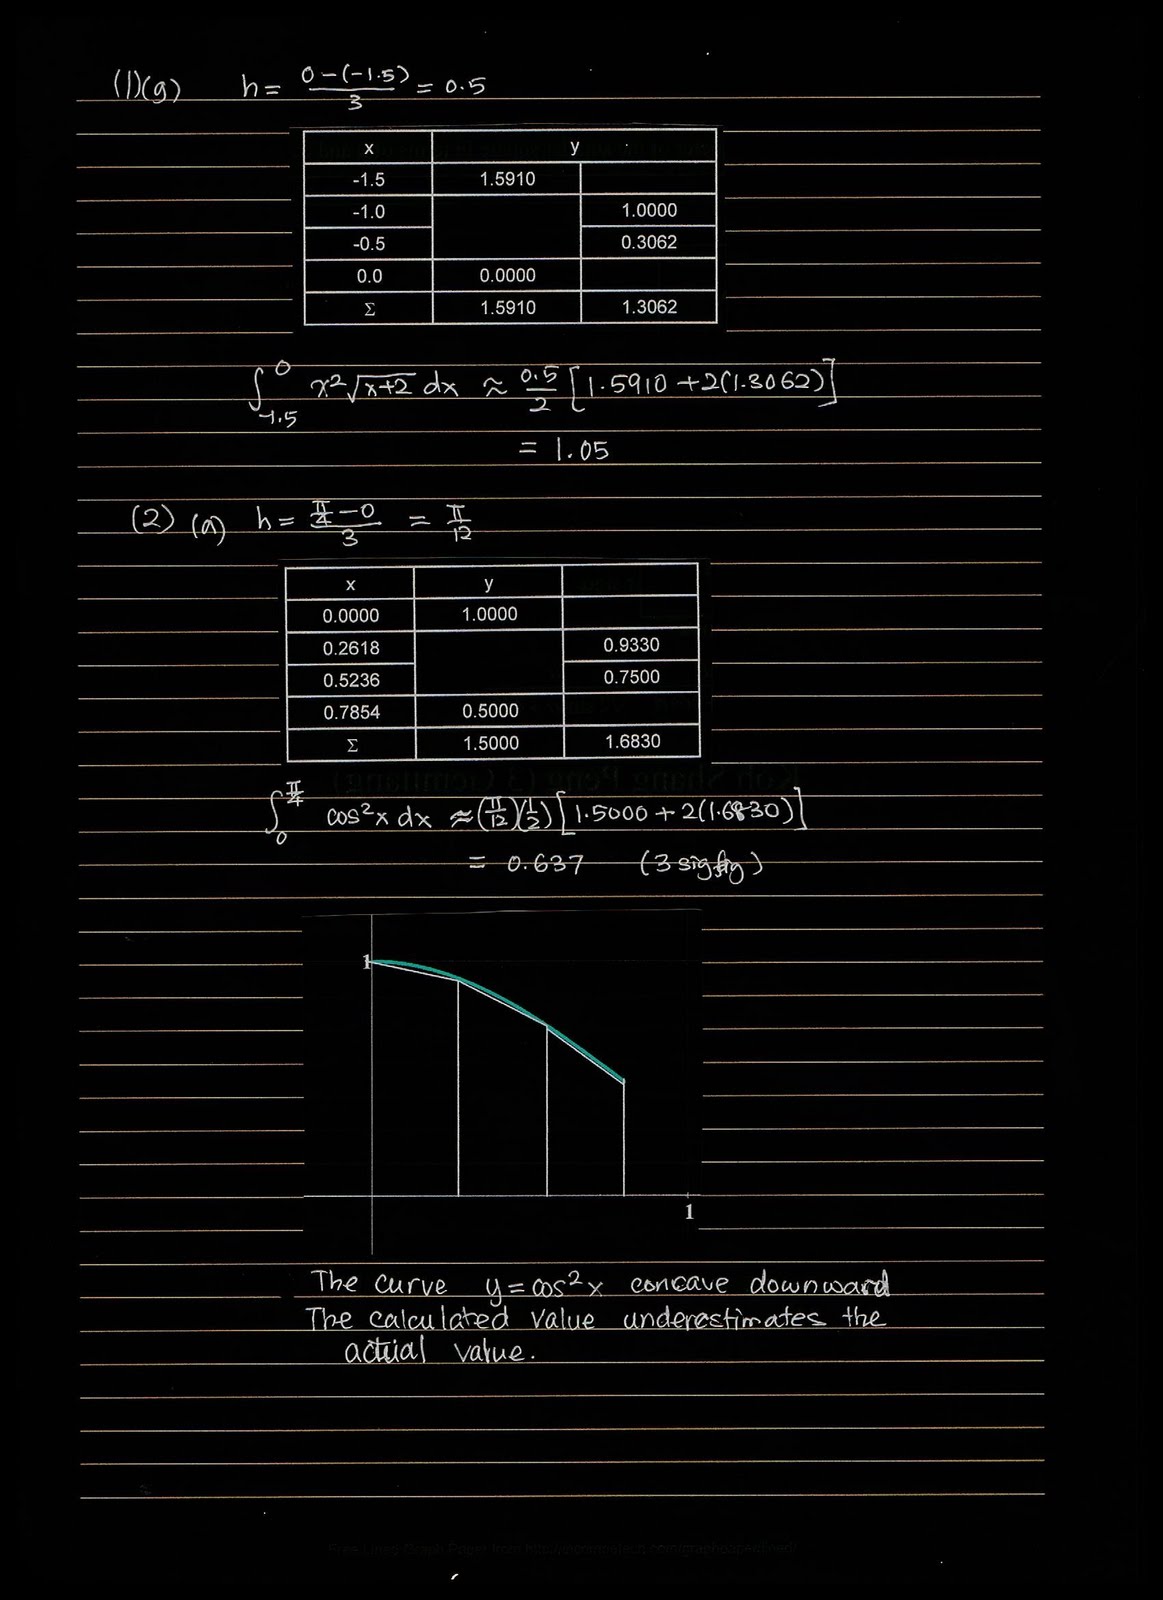 (1)(g) h = 0-(-1.5)/3 = 0.5
x y
-1.5 1.5910
-1.0 1.0000
-0.5 0.3062
0.0 0.0000
Σ 1.5910 1.3062
∫_{-1.5}^{0} x²√(x+2) dx ≈ 0.5/2 [1.5910 + 2(1.3062)]
= 1.05
(2) (a) h = (π/4 - 0)/3 = π/12
x y
0.0000 1.0000
0.2618 0.9330
0.5236 0.7500
0.7854 0.5000
Σ 1.5000 1.6830
∫_{0}^{π/4} cos²x dx ≈ (π/12)(1/2)[1.5000 + 2(1.6830)]
= 0.637 (3 sig fig)
1
1
The curve y = cos²x concave downward
The calculated value underestimates the
actual value.